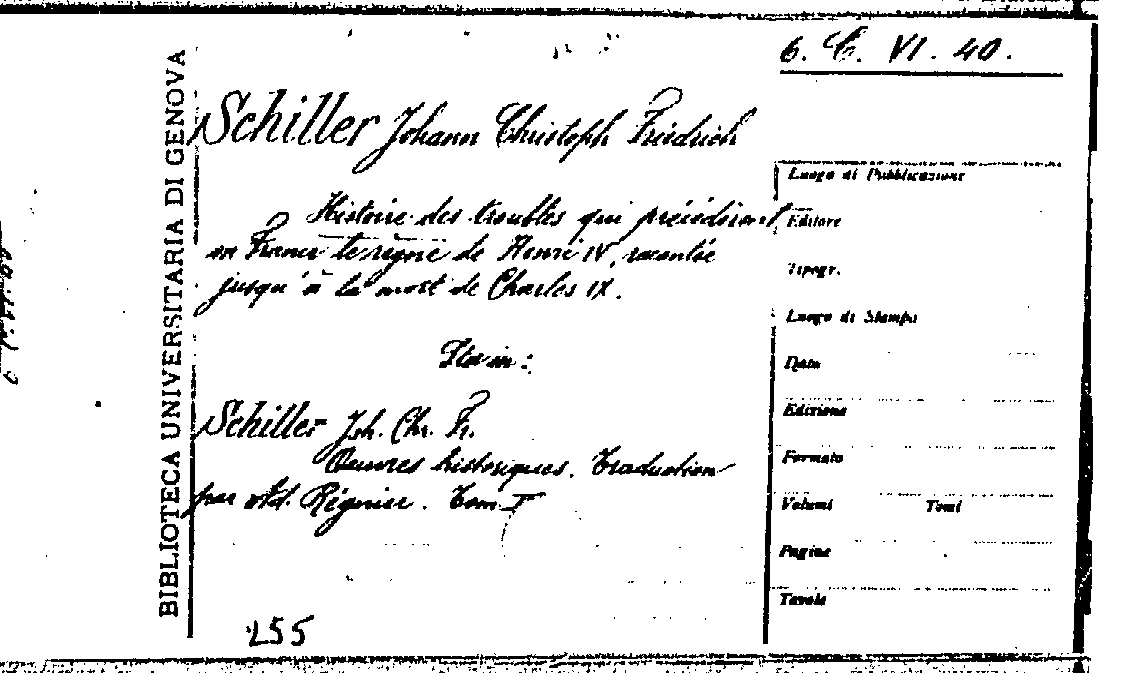 6. C. VI. 40.
BIBLIOTECA UNIVERSITARIA DI GENOVA
Schiller Johann Christoph Friedrich
Histoire des troubles qui précédèrent
en France le règne de Henri IV, racontée
jusqu'à la mort de Charles IX.
Sta in:
Schiller Joh. Chr. Fr.
Oeuvres historiques. Traduction
par Ad. Régnier. Tom. I
255
Luogo di Pubblicazione
Editore
Tipogr.
Luogo di Stampa
Data
Edizione
Formato
Volumi Tomi
Pagine
Tavole